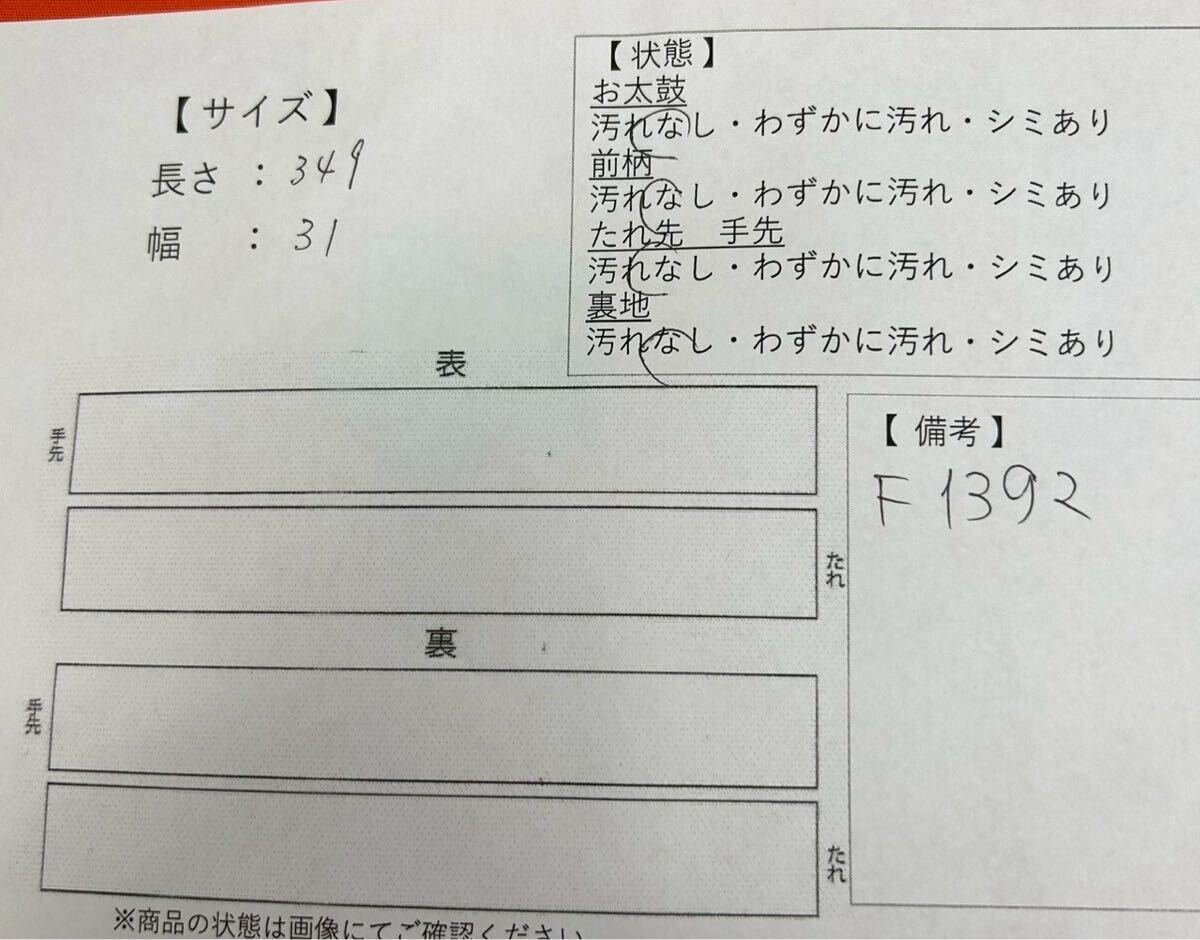 【サイズ】
長さ : 349
幅 : 31
【状態】
お太鼓
汚れなし・わずかに汚れ・シミあり
前柄
汚れなし・わずかに汚れ・シミあり
たれ先 手先
汚れなし・わずかに汚れ・シミあり
裏地
汚れなし・わずかに汚れ・シミあり
表
手先
たれ
裏
手先
たれ
【備考】
F1392
※商品の状態は画像にてご確認ください